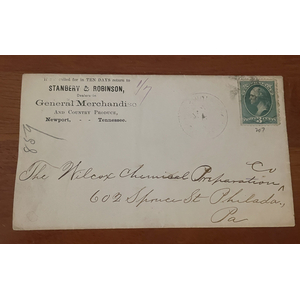 If not called for in TEN DAYS return to
STANBERY & ROBINSON,
Dealers in
General Merchandise
AND COUNTRY PRODUCE,
Newport, - - Tennessee.
1/7
The Wilcox Chemical Preparation Co
602 Spruce St Philada,
Pa